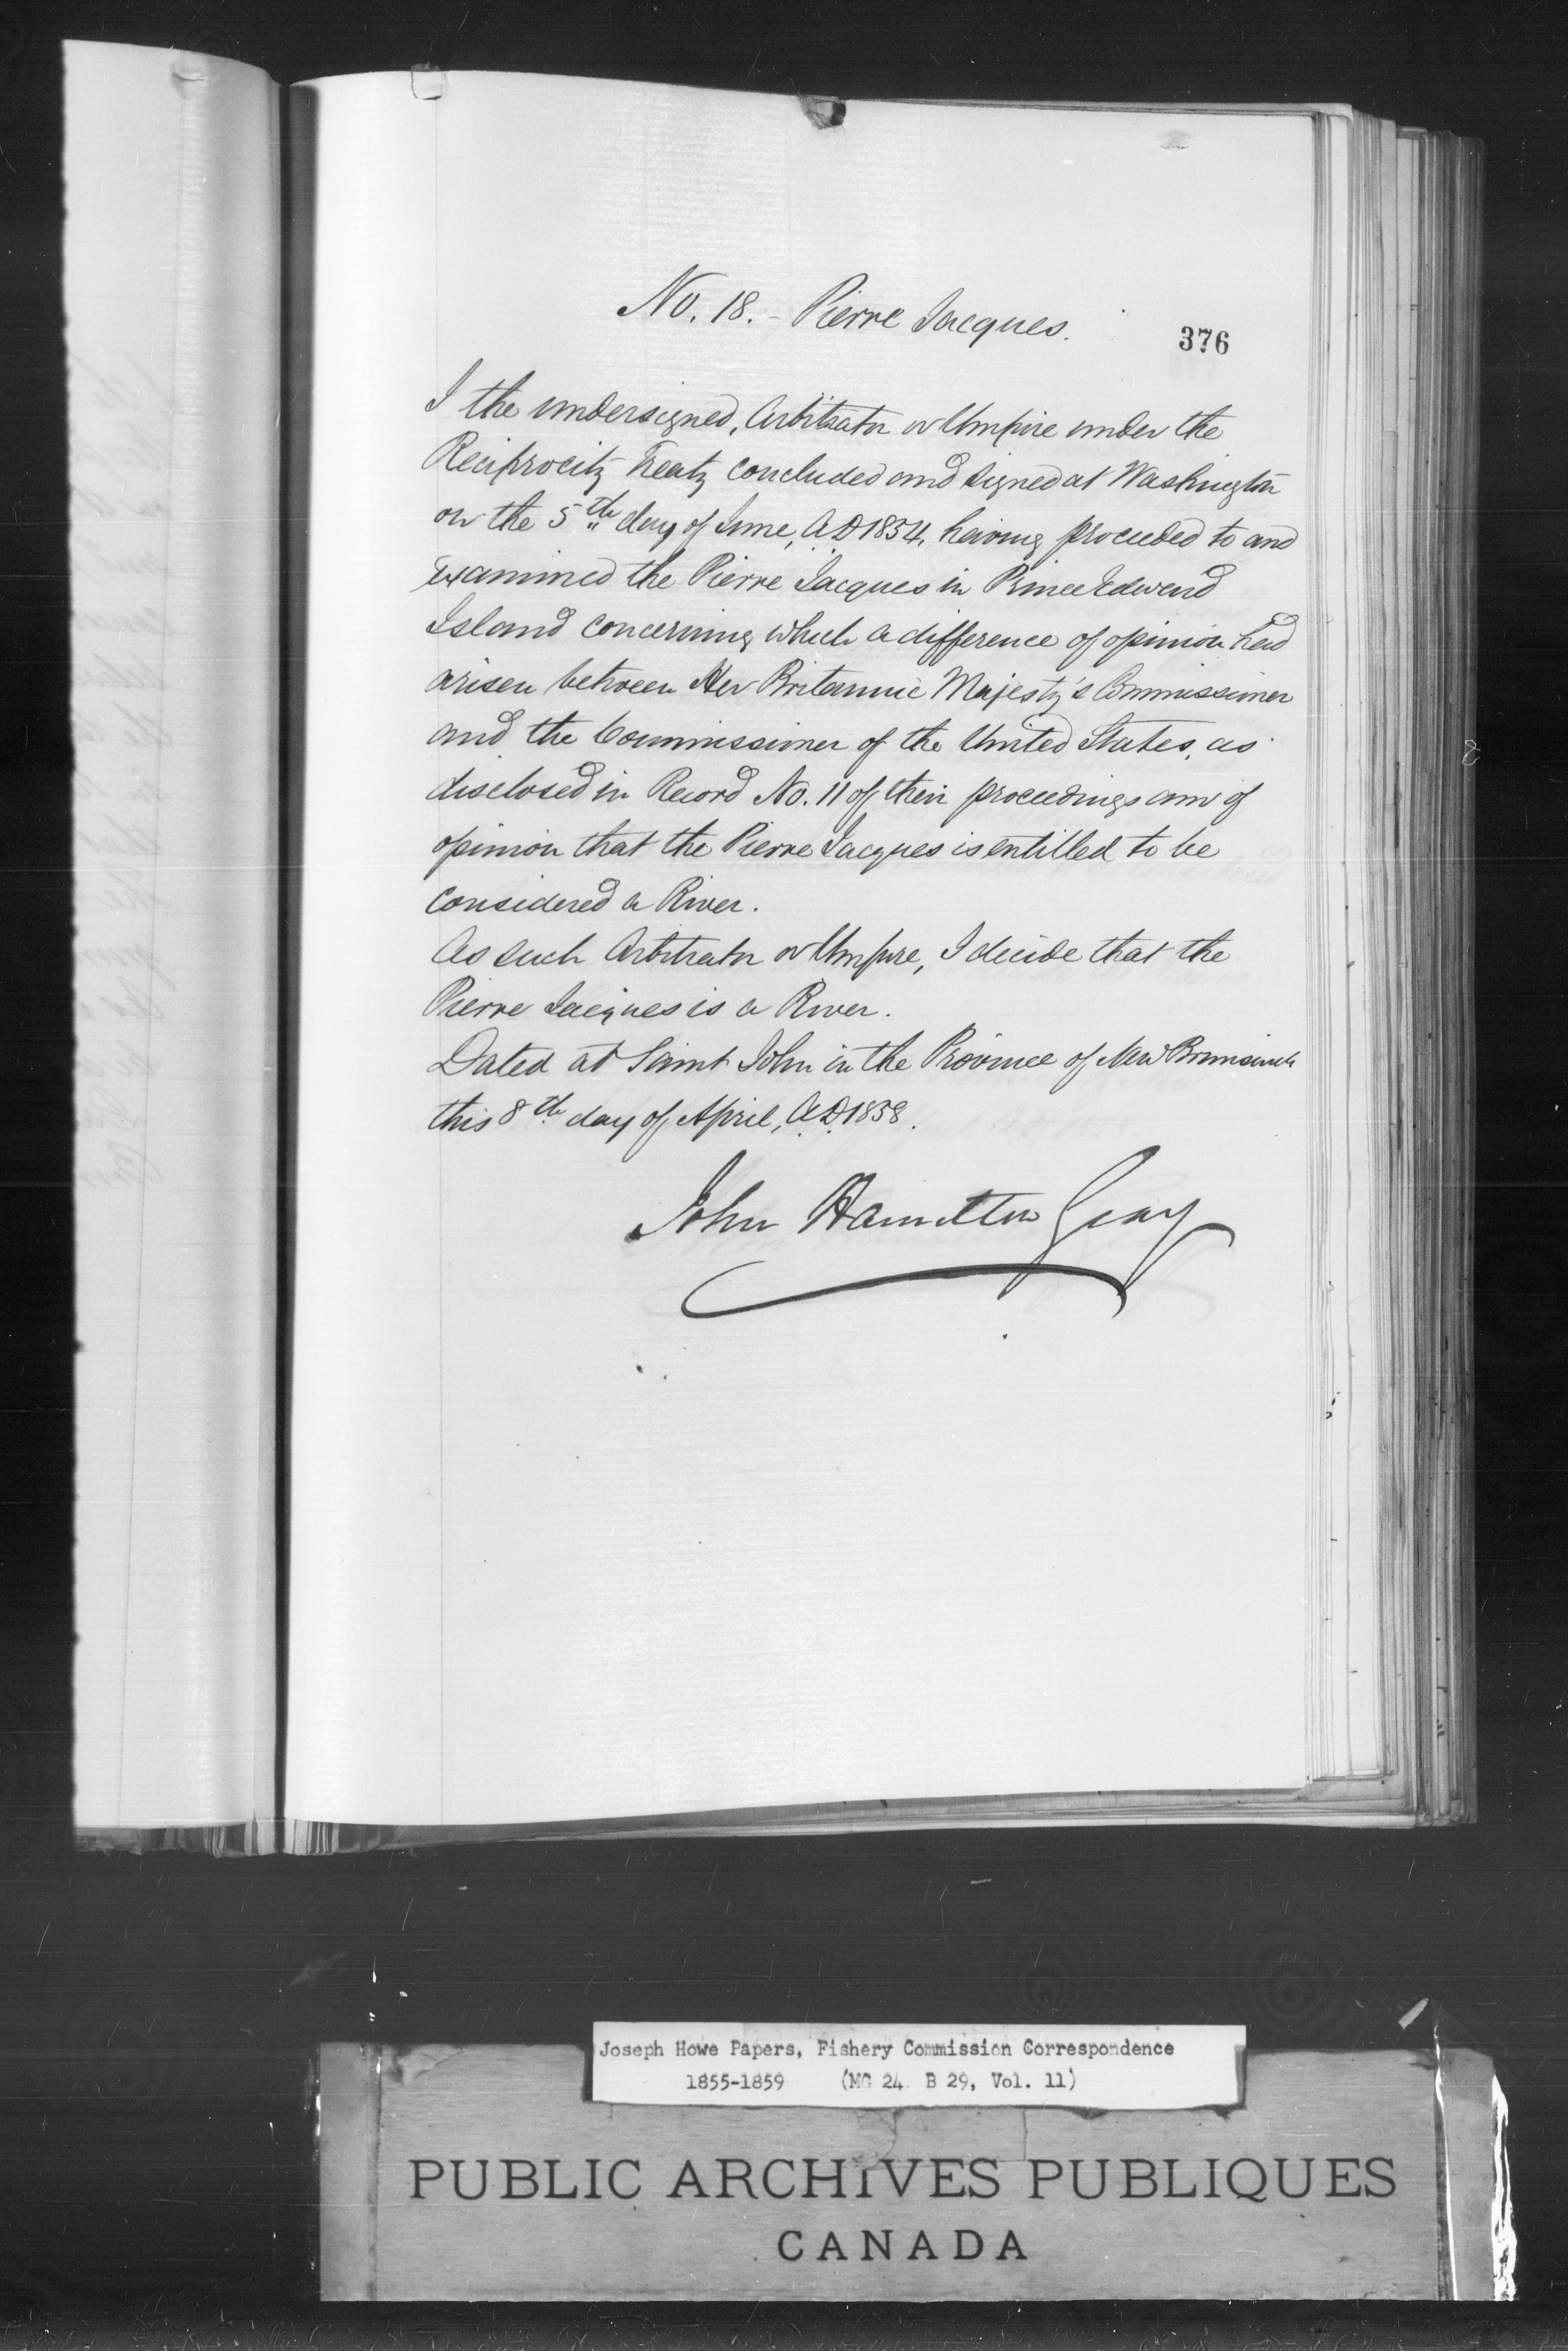 No. 18. - Pierre Jacques.
376
I the undersigned, Arbitrator or Umpire under the
Reciprocity Treaty concluded and signed at Washington
on the 5th day of June, A.D. 1854, having proceeded to and
examined the Pierre Jacques in Prince Edward
Island concerning which a difference of opinion had
arisen between Her Britannic Majesty's Commissioner
and the Commissioner of the United States, as
disclosed in Record No. 11 of their proceedings am of
opinion that the Pierre Jacques is entitled to be
considered a River.
As such Arbitrator or Umpire, I decide that the
Pierre Jacques is a River.
Dated at Saint John in the Province of New Brunswick
this 8th day of April, A.D. 1858.
John Hamilton Gray
Joseph Howe Papers, Fishery Commission Correspondence
1855-1859 (MG 24 B 29, Vol. 11)
PUBLIC ARCHIVES PUBLIQUES
CANADA